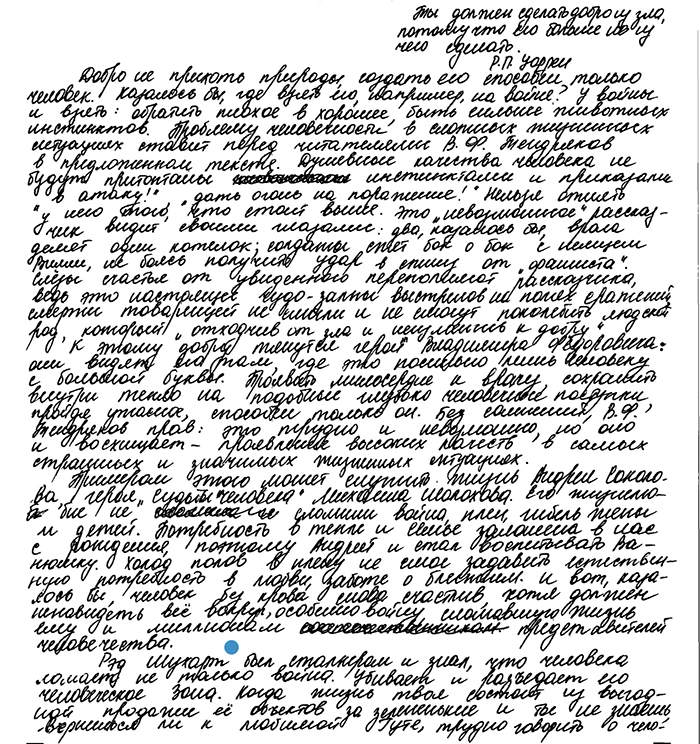 Ты должен сделать добро из зла,
потому что его больше не из
чего сделать.
Р.П. Уоррен
Добро не прихоть природы, создать его способен только
человек. Казалось бы, где взять его, например, на войне? У войны
и взять: обратить плохое в хорошее, быть сильнее животных
инстинктов. Проблему человечности в сложных жизненных
ситуациях ставит перед читателями В.Ф. Тендряков
в предложенном тексте. Душевные качества человека не
будут притоптаны инстинктами и приказами
"в атаку!" "дать огонь на поражение!" Нельзя отнять
у него того, что стоит выше. Это "невозможное" рассказ-
чик видит своими глазами: два, казалось бы, врага
делят один котелок; солдаты спят бок о бок с немцем
не боясь получить удар в спину от "фашиста".
Слёзы счастья от увиденного переполняют рассказчика,
ведь это настоящее чудо - залпы выстрелов на полях сражений
смерти товарищей не смогли и не смогут поколебить людской
род, который "отходчив от зла и неутомим к добру".
К этому добру тянутся герои Владимира Фёдоровича:
они видят его там, где это посильно лишь Человеку
с большой буквы. Проявить милосердие к врагу, сохранить
внутри тепло на подобные глубоко человечные поступки
пройдя ужасное, способен только он. Без сомнения, В.Ф.
Тендряков прав: это трудно и невозможно, но оно
и восхищает - проявление высоких качеств в самых
страшных и значимых жизненных ситуациях.
Примером этого может служить жизнь Андрея Соколо-
ва героя "Судьбы человека" Михаила Шолохова. Его жизнелю-
бие не сломили война, плен, гибель жены
и детей. Потребность в тепле и семье заложена в нас
с рождения, поэтому Андрей и стал воспитывать Ва-
нюшку. Холод полов в плену не смог задавить естествен-
ную потребность в любви, заботе о ближнем. И вот, каза-
лось бы, человек без крова снова счастлив хотя должен
ненавидеть всё вокруг, особенно войну, сломавшую жизнь
ему и миллионам представителей
человечества.
Рэд Шухарт был сталкером и знал, что человека
ломает не только война. Убивает и разъедает его
человеческое Зона. Когда жизнь твоя состоит из выгод-
ной продажи её объектов за зелененькие и ты не знаешь
вернешься ли к любимой Гуте, трудно говорить о чело-